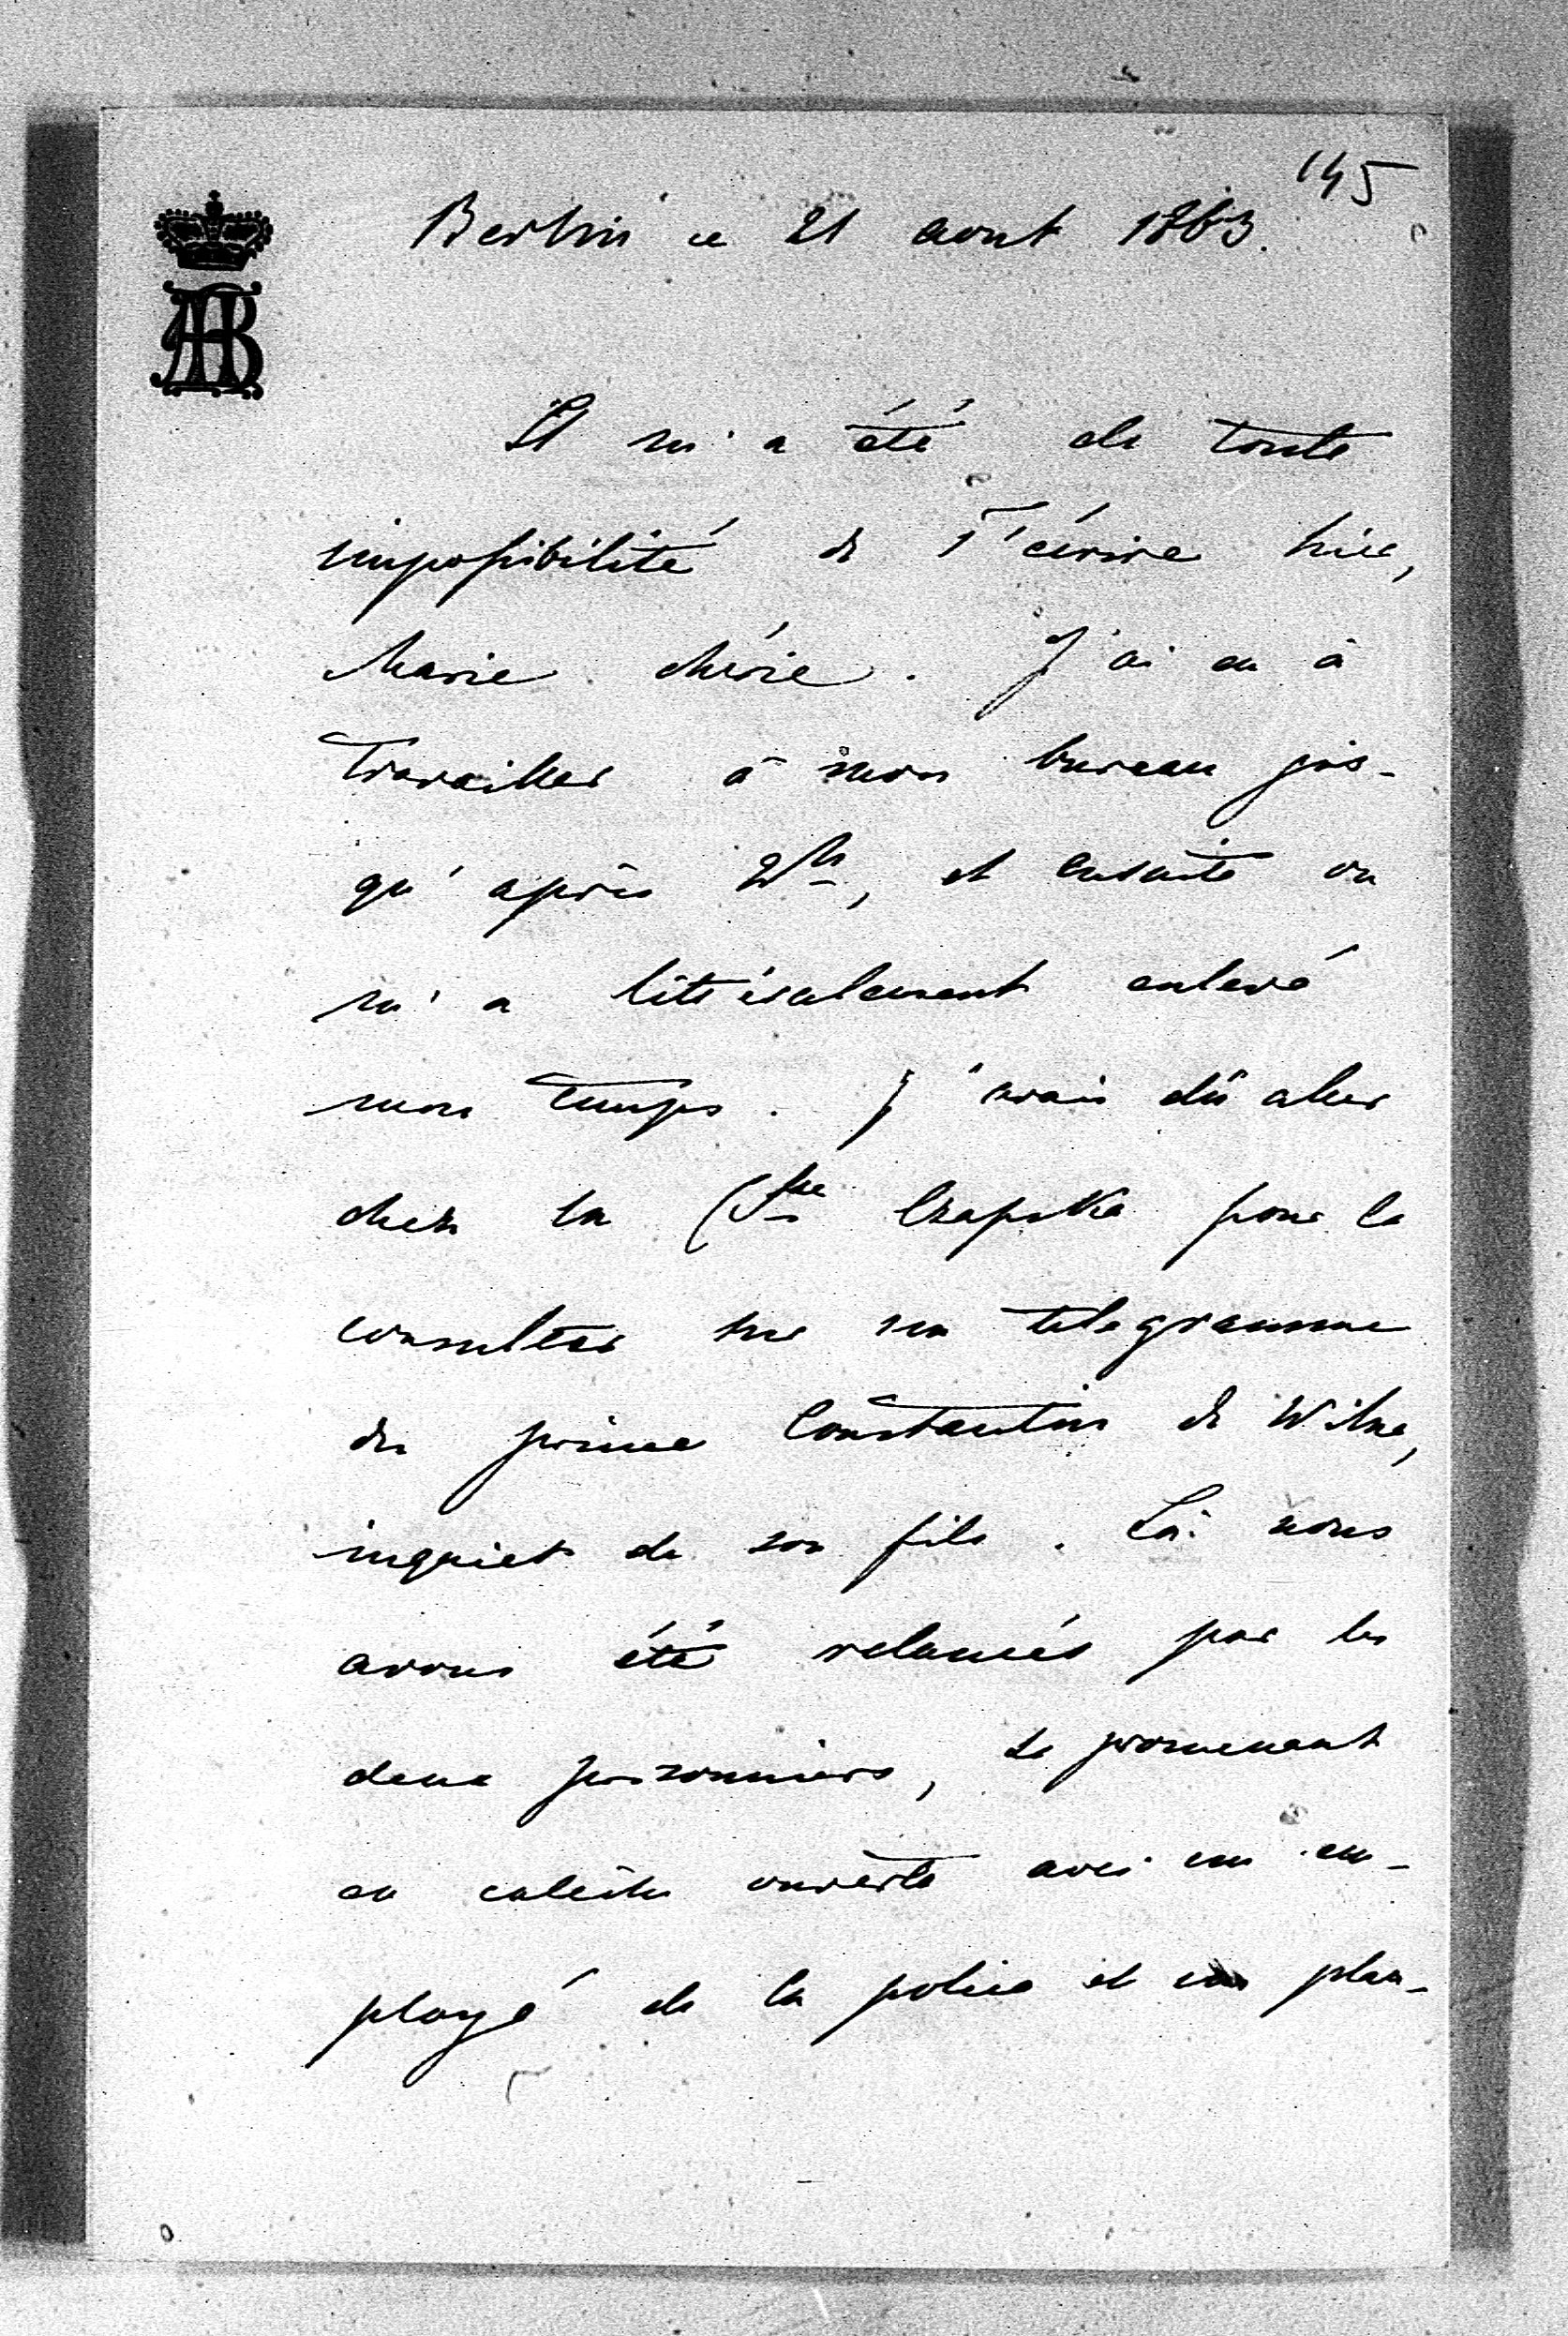 145
Berlin ce 21 aout 1863.
AB
Il m'a été de toute
impossibilité de T'écrire hier,
Marie chérie. J'ai eu à
travailler à mon bureau jus-
qu'après 2h, et ensuite on
m'a littéralement enlevé
mon temps. J'avais dû aller
chez la Csse Czapska pour la
consulter sur un telegramme
du prince Constantin de Wilna,
inquiet de son fils. Là nous
avons été relancés par les
deux prisonniers, se promenant
en calèche ouverte avec un em-
ployé de la police et un plan-